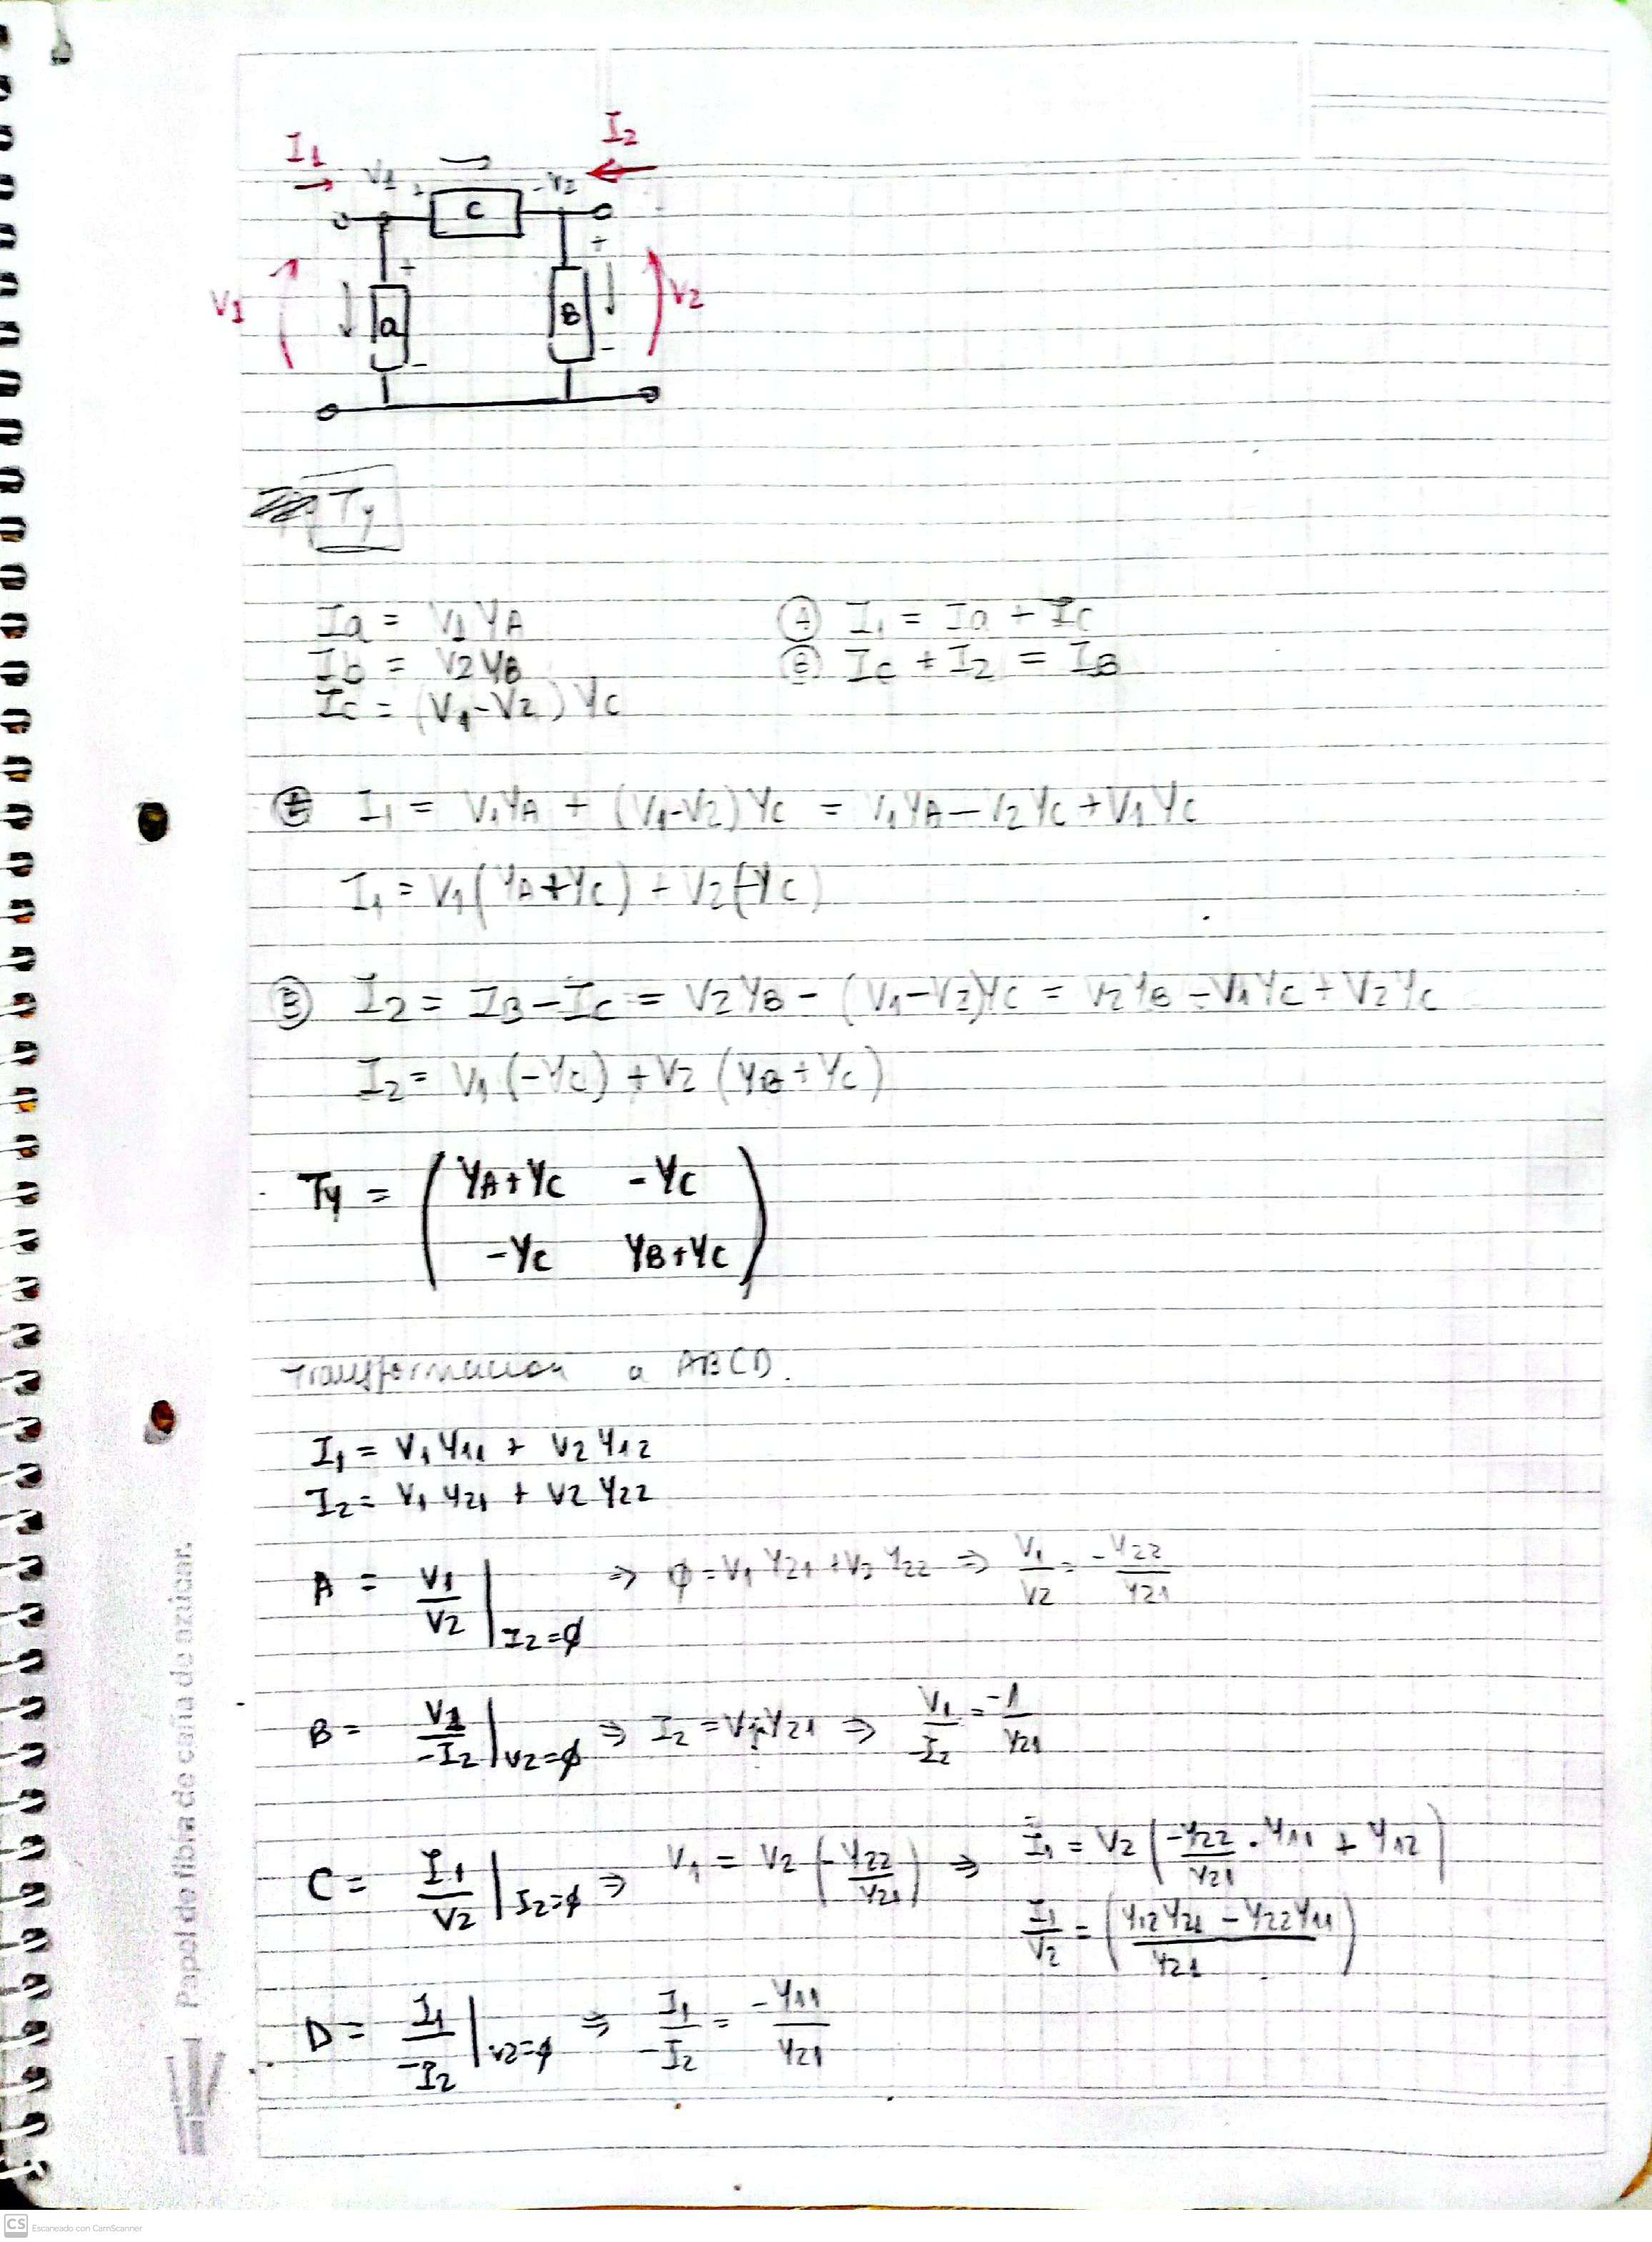 I1
I2
V1 + C - V2
+ +
V1 a B V2
- -
Ty
Ia = V1 YA
(A) I1 = Ia + Ic
Ib = V2 YB
(B) Ic + I2 = IB
Ic = (V1-V2) Yc
I1 = V1YA + (V1-V2) Yc = V1YA - V2Yc + V1Yc
I1 = V1(YA+Yc) + V2(-Yc)
(B) I2 = IB - Ic = V2YB - (V1-V2)Yc = V2YB - V1Yc + V2Yc
I2 = V1(-Yc) + V2 (YB+Yc)
Ty = ( YA+Yc -Yc
-Yc YB+Yc )
Transformacion a ABCD.
I1 = V1 Y11 + V2 Y12
I2 = V1 Y21 + V2 Y22
A = V1/V2 | I2=∅ ⇒ ∅ = V1 Y21 + V2 Y22 ⇒ V1/V2 = -Y22/Y21
B = V1/-I2 | V2=∅ ⇒ I2 = V1 Y21 ⇒ V1/-I2 = -1/Y21
C = I1/V2 | I2=∅ ⇒ V1 = V2 (-Y22/Y21) ⇒ I1 = V2 (-Y22/Y21 . Y11 + Y12)
I1/V2 = (Y12Y21 - Y22Y11 / Y21)
D = I1/-I2 | V2=∅ ⇒ I1/-I2 = -Y11/Y21
Papel de fibra de caña de azúcar.
CS Escaneado con CamScanner